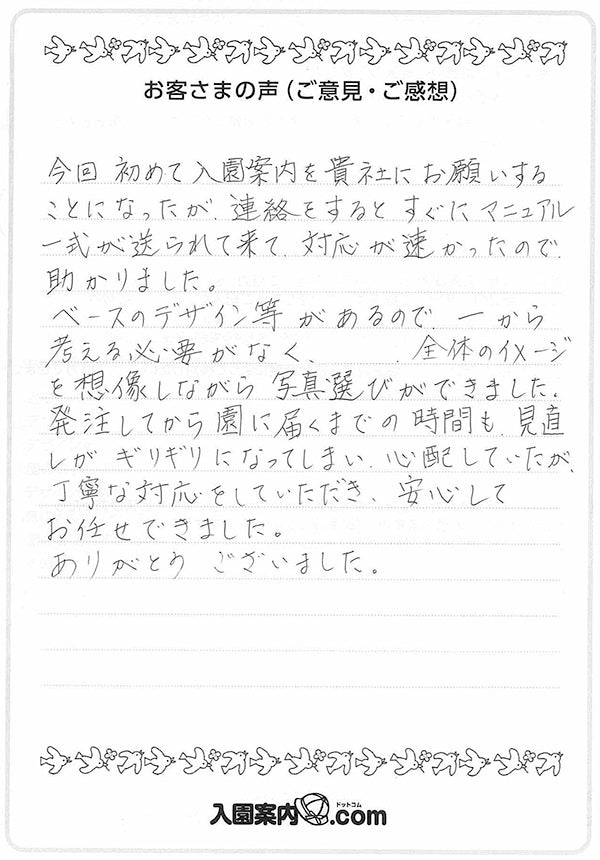 お客さまの声（ご意見・ご感想）
今回 初めて入園案内を貴社にお願いする
ことになったが、連絡をするとすぐにマニュアル
一式が送られて来て、対応が速かったので
助かりました。
ベースのデザイン等があるので、一から
考える必要がなく、全体のイメージ
を想像しながら写真選びができました。
発注してから園に届くまでの時間も、見直
しがギリギリになってしまい、心配していたが、
丁寧な対応をしていただき、安心して
お任せできました。
ありがとう ございました。
入園案内ドットコム.com